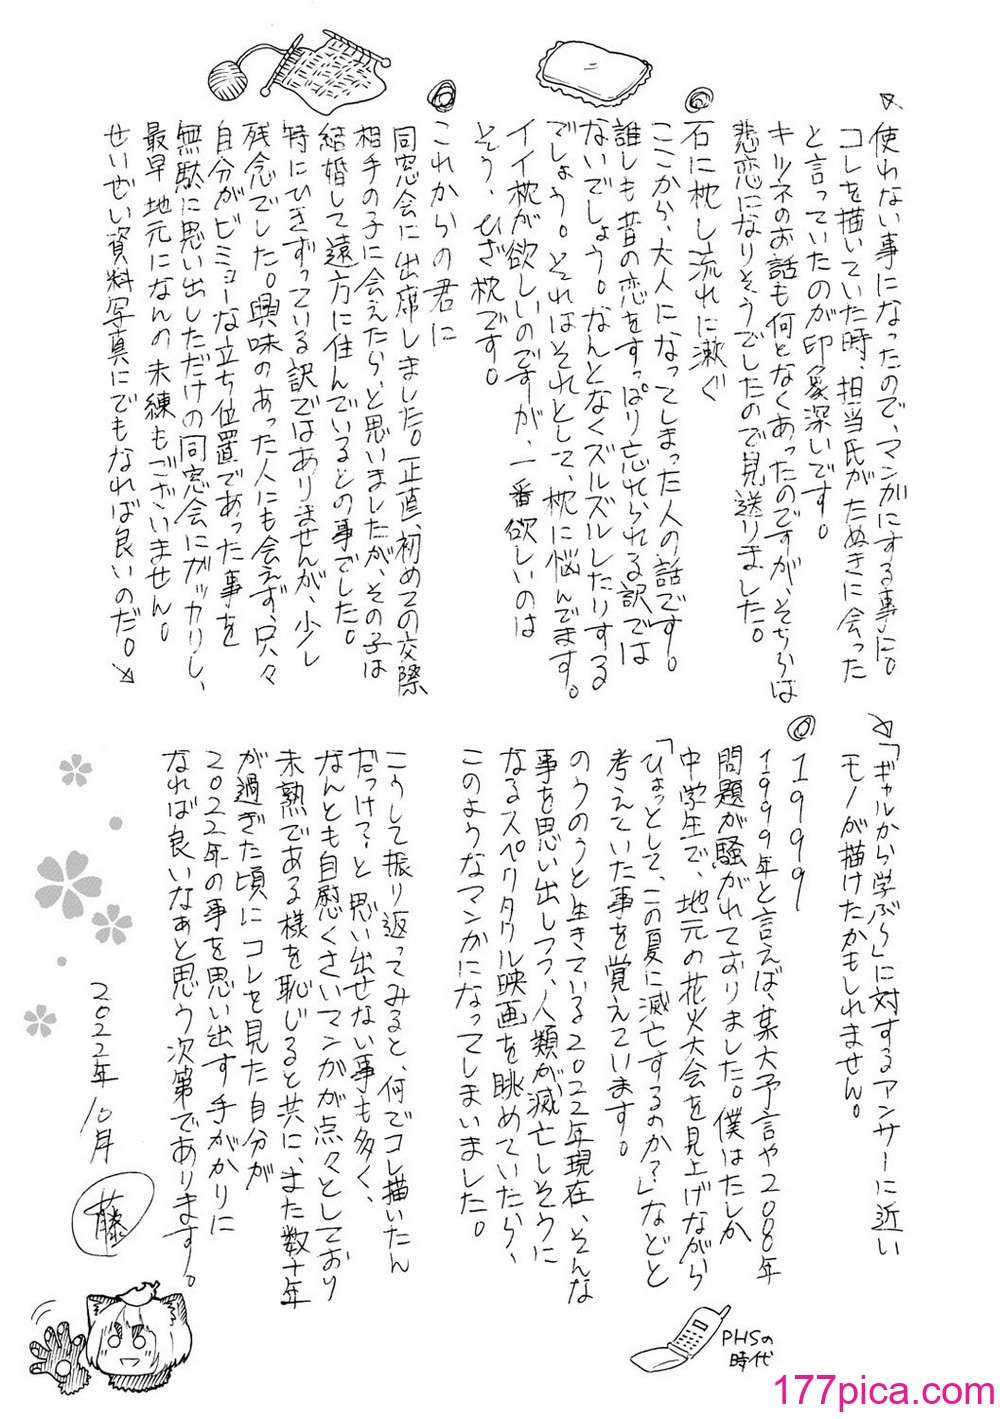 使わない事になったので、マンガにする事に。
コレを描いていた時、担当氏がたぬきに会った
と言っていたのが印象深いです。
キツネのお話も何となくあったのですが、そちらは
悲恋になりそうでしたので見送りました。
石に枕し流れに漱ぐ
ここから、大人になってしまった人の話です。
誰しも昔の恋をすっぱり忘れられる訳では
ないでしょう。なんとなくズルズルしたりする
でしょう。それはそれとして、枕に悩んでます。
イイ枕が欲しいのですが、一番欲しいのは
そう、ひざ枕です。
これからの君に
同窓会に出席しました。正直、初めての交際
相手の子に会えたら、と思いましたが、その子は
結婚して遠方に住んでいるとの事でした。
特にひきずっている訳ではありませんが、少し
残念でした。興味のあった人にも会えず、只々
自分がビミョーな立ち位置であった事を
無駄に思い出しただけの同窓会にガッカリし、
最早地元になんの未練もございません。
せいぜい資料写真にでもなれば良いのだ。
「ギャルから学ぶら」に対するアンサーに近い
モノが描けたかもしれません。
1999
1999年と言えば、某大予言や2000年
問題が騒がれておりました。僕はたしか
中学生で、地元の花火大会を見上げながら
「ひょっとして、この夏に滅亡するのか?」などと
考えていた事を覚えています。
のうのうと生きている2022年現在、そんな
事を思い出しつつ、人類が滅亡しそうに
なるスペクタクル映画を眺めていたら、
このようなマンガになってしまいました。
こうして振り返ってみると、何でコレ描いたん
だっけ?と思い出せない事も多く、
なんとも自慰くさいマンガが点々としており
未熟である様を恥じると共に、また数十年
が過ぎた頃にコレを見た自分が
2022年の事を思い出す手がかりに
なれば良いなぁと思う次第であります。
2022年10月
藤
PHSの
時代
177pica.com